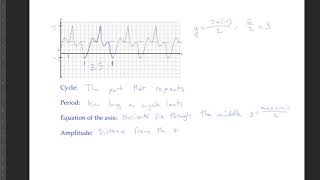 y = 7+(-1)/2 = 6/2 = 3
3.5
Cycle: The part that repeats
Period: How long a cycle lasts
Equation of the axis: Horizontal line through the middle y = max+min/2
Amplitude: Distance from the